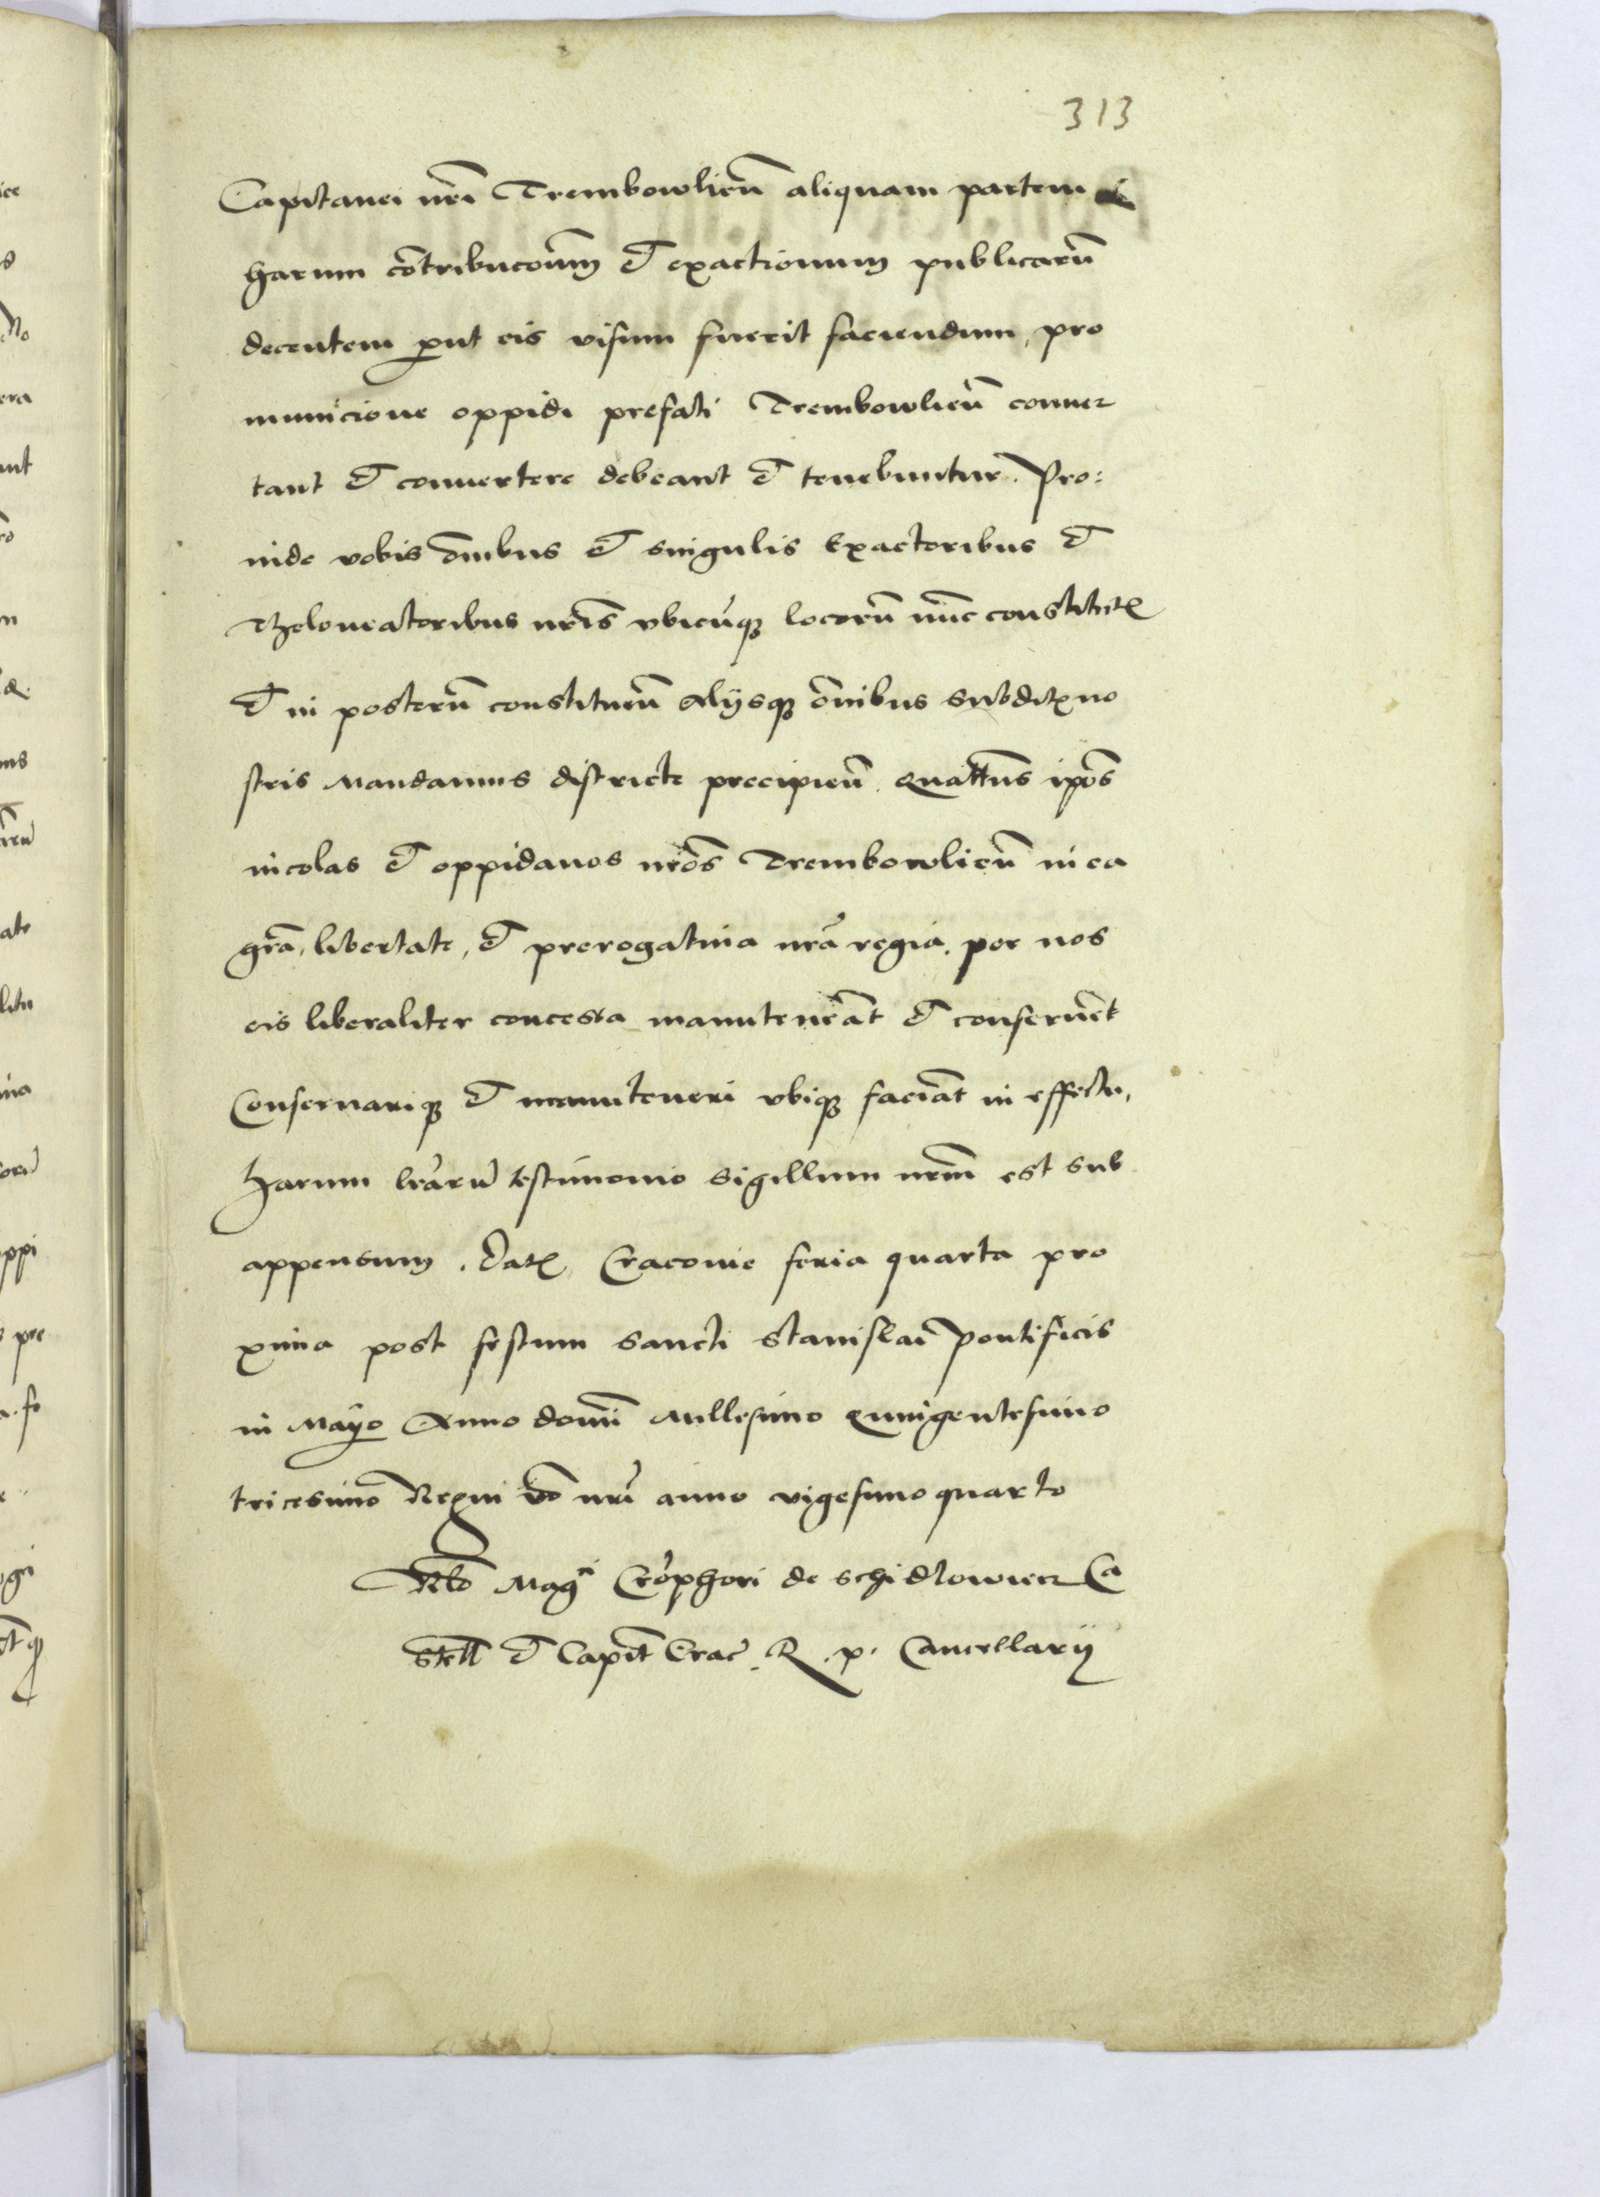 313
Capitanei nr̃i Trembowlien̄ aliquam partem
harum cōtribucoñum et exactionum publicarū
decentem put eis visum fuerit faciendum, pro
municione oppidi prefati Trembowlien̄ conuer
tant et conuertere debeant et tenebuntur. Pro:
inde vobis om̄ibus et singulis Exactoribus et
Theloneatoribus nr̃is vbicūq locorū nūc constitutꝭ
et in posterū constituen̄ Alijsq om̄ibus subditꝭ no
stris Mandamus districte precipien̄. Quatten̄s ip̄os
incolas et oppidanos nr̃os Trembowlien̄ in ea
gr̃a, libertate, et prerogatiua nr̃a regia, per nos
eis liberaliter concessa manuteneāt et conseruēt
Conseruariq et manuteneri vbiq faciāt in effectu,
Harum lr̃arū testimonio sigillum nr̃m est sub
appensum. Datꝭ Cracouie feria quarta pro
xima post festum sancti Stanislai Pontificis
in Mayo Anno domī Millesimo Quingentesimo
tricesimo Regni vo nr̃i anno vigesimo quarto
Rlo Magci Cr̃ophori de Schidlowiecz Ca
stell et Capit̄ Crac̄. R. p. Cancellarij